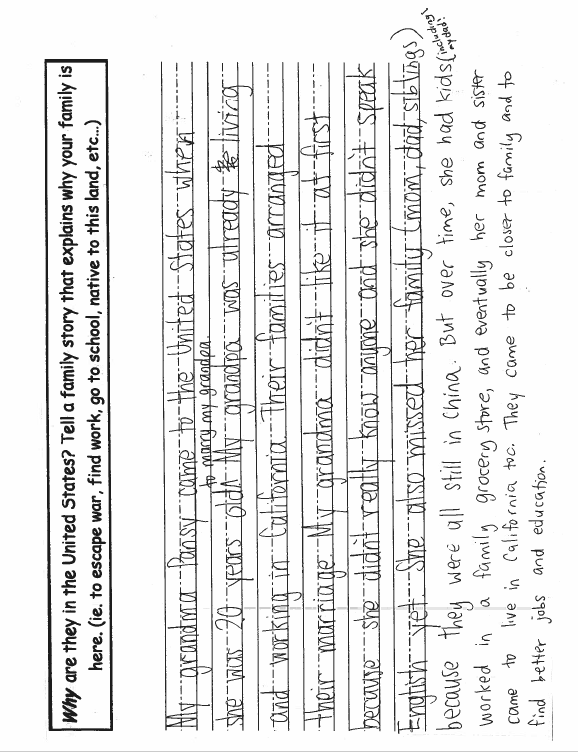 Why are they in the United States? Tell a family story that explains why your family is
here. (ie. to escape war, find work, go to school, native to this land, etc...)
My grandma Pansy came to the United States when
to marry my grandpa.
she was 20 years old^ My grandpa was already living
and working in California Their families arranged
their marriage. My grandma didn't like it at first
because she didn't really know anyone and she didn't speak
English yet. She also missed her family (mom, dad, siblings)
because they were all still in China. But over time, she had kids (including my dad!)
worked in a family grocery store, and eventually her mom and sister
came to live in California too. They came to be closer to family and to
find better jobs and education.